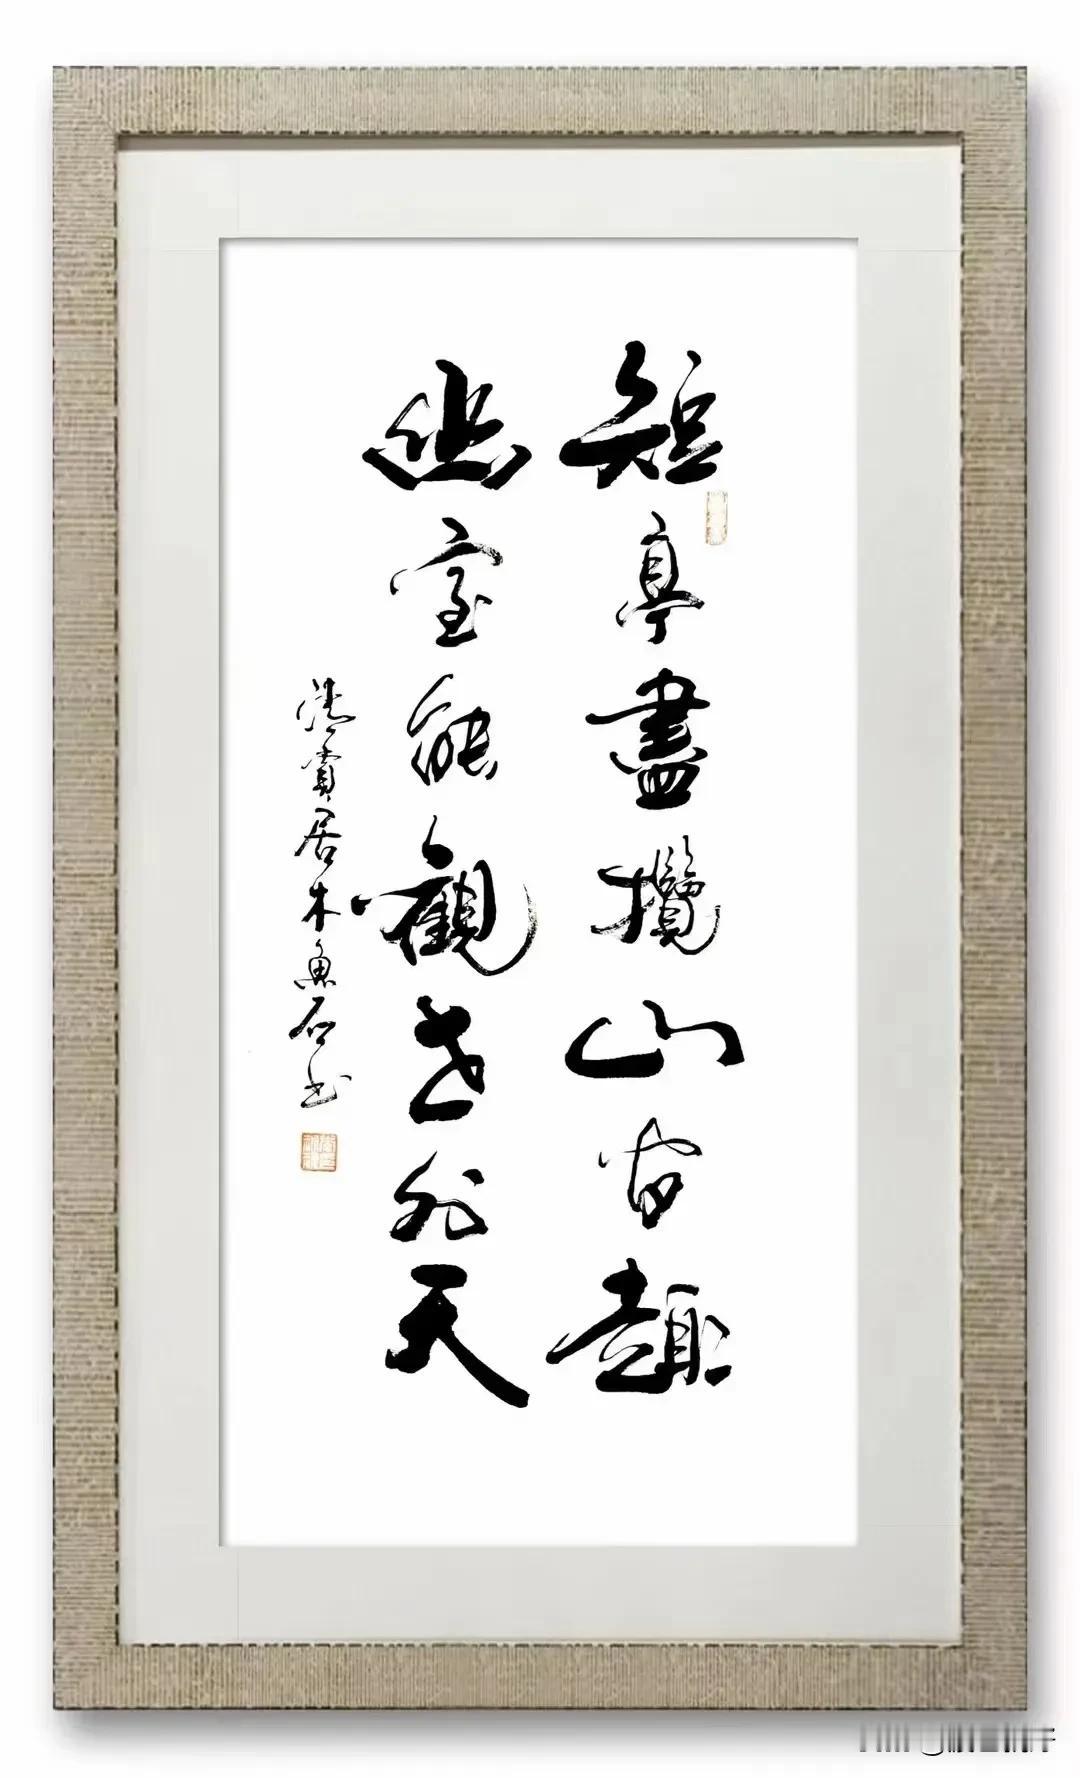 短亭盡攬山間趣
幽室能觀世外天
賞居木魚石書